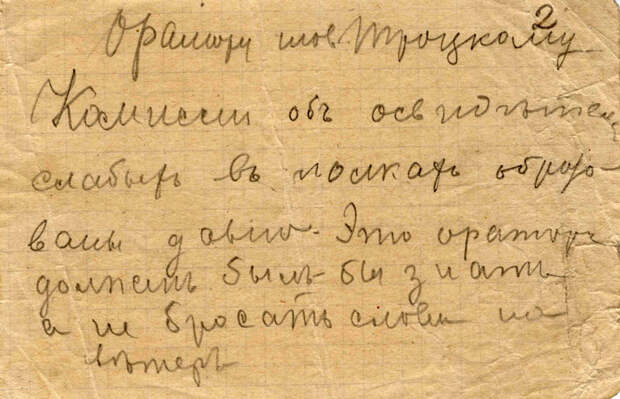 2
Оратору тов Троцкому
Комиссии объ освидѣтел
слабыхъ въ полкахъ образо
ваны давно. Это ораторъ
долженъ былъ бы знать
а не бросать слова на
вѣтеръ